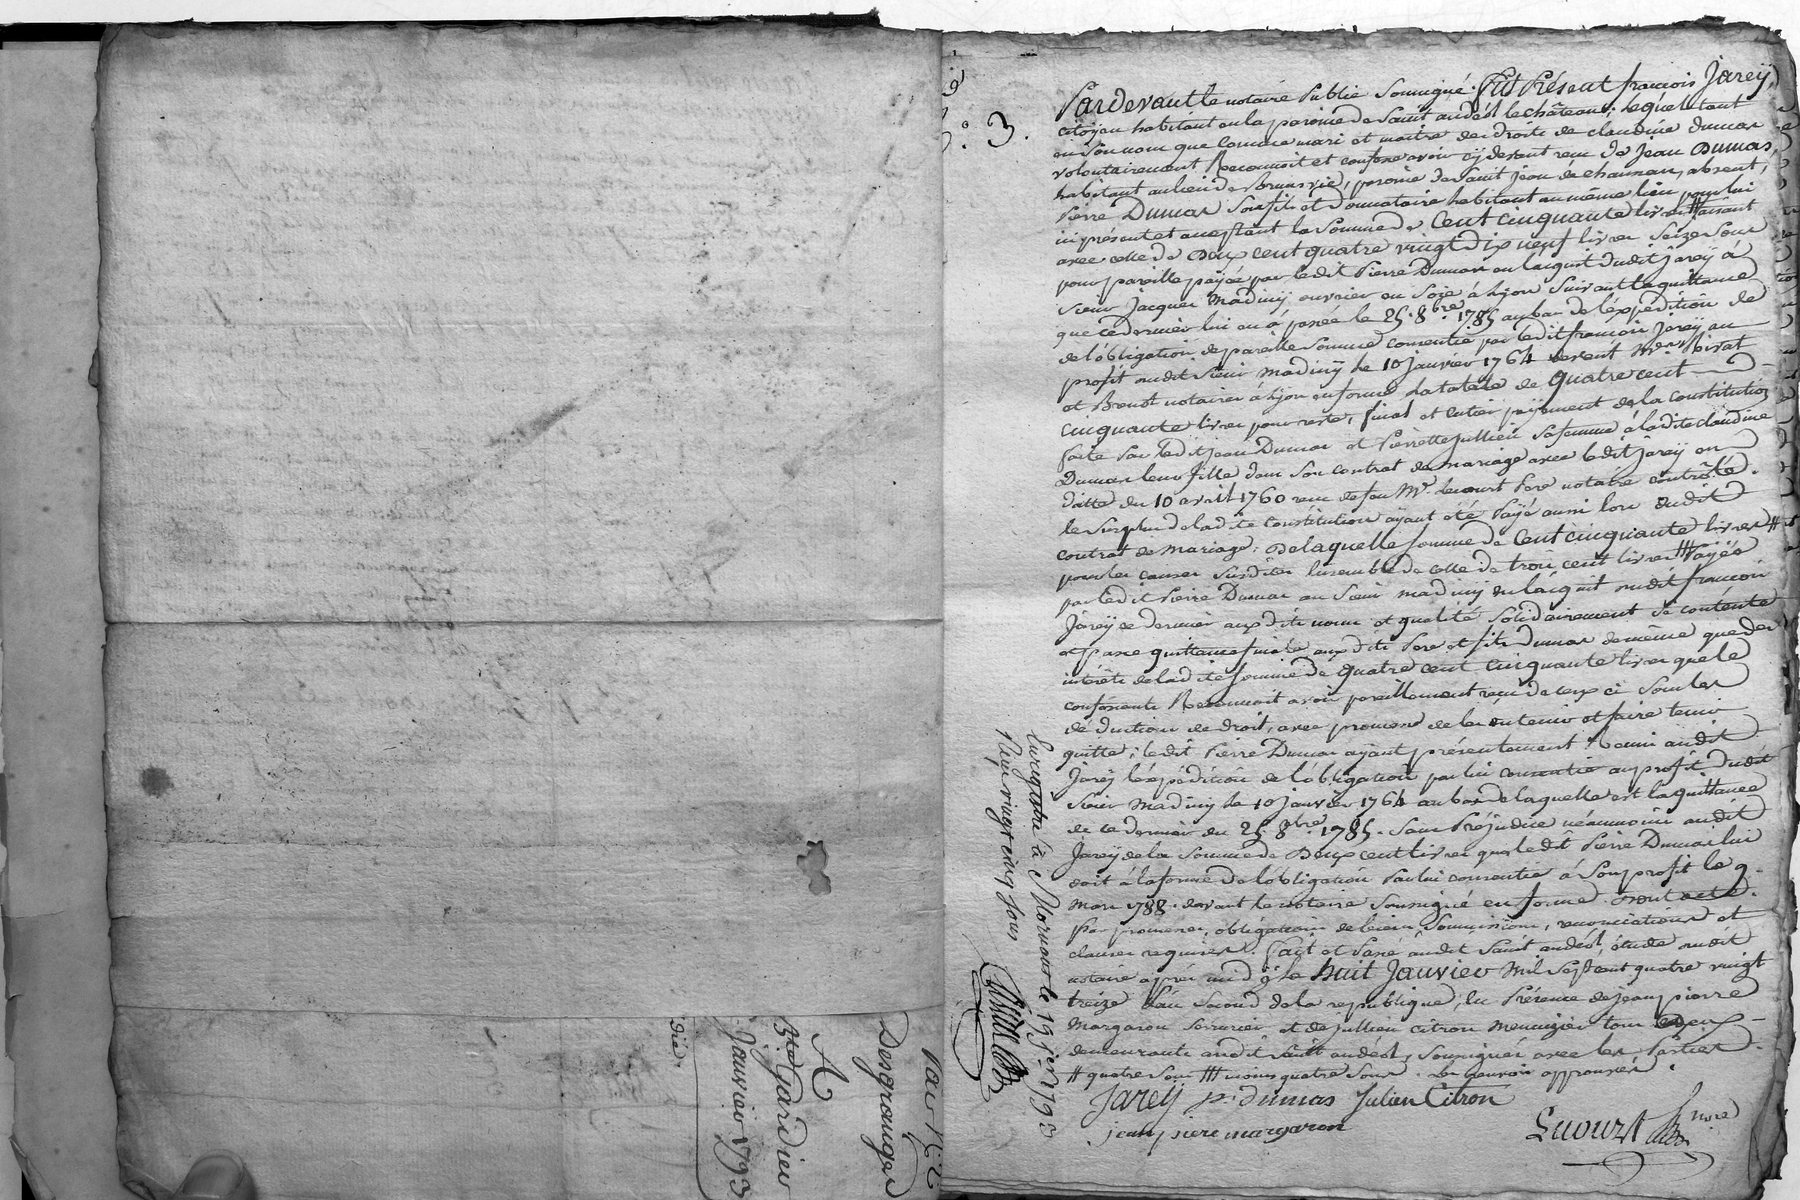 N.° 3.
Pardevant le notaire Public Soussigné. Fut Présent françois Jareÿ,
citoyen habitant en la paroisse de Saint andéol le château; lequel tant
en Son nom que comme mari et maitre des droits de claudine dumas
volontairement Reconnoit et confesse avoir cÿ devant reçu de Jean Dumas,
habitant au lieu de, paroisse de Saint Jean de chaussan, absent,
Pierre Dumas Son fils et donnataire habitant au même lieu pour lui
ici présent et acceptant la Somme de Cent cinquante livres # faisant
avec celle de Deux cent quatre vingt dix neuf livres Seize Sous
pour pareille payée par ledit Pierre Dumas en l'acquit dudit Jareÿ à
Sieur Jacques Madiniÿ ouvrier en Soie à Lyon Suivant la quittance
que ce dernier lui en à passée le 25. 8bre. 1785 au bas de l'expédition de
de l'obligation de pareille Somme consentie par ledit françois Jareÿ au
profit dudit Sieur Madiniÿ le 10 janvier 1764 devant Mes.
et notaires à Lyon en forme la totale de quatre cent
cinquante livres pour reste, final et entier paÿement de la constitution
faite Par ledit Jean Dumas et Pierrette Jullien Sa femme à ladite claudine
Dumas leur fille dans Son contrat de mariage avec ledit Jareÿ en
datte du 10 avril 1760 reçu de feu Me. Lecourt Pere notaire contrôlé.
le Surplus de ladite constitution aÿant été Paÿé aussi lors dudit
contrat de mariage. De laquelle Somme de Cent cinquante livres #
pour les causes Susdites Ensemble de celle de trois cent livres ### Payée
par ledit Pierre Dumas au Sieur Madiniÿ en l'acquit dudit françois
Jareÿ ce dernier auxdits noms et qualité Solidairement Se contente
et passe quittance finale auxdits Pere et fils Dumas de même que des
intérêts de ladite Somme de quatre cent cinquante livres que le
confessant Reconnoit avoir pareillement reçu de ceux ci Sous les
déductions de droit, avec promesse de les en tenir et faire tenir
quitte; ledit Pierre Dumas aÿant présentement Remis audit
Jareÿ l'expédition de l'obligation par lui consentie au profit dudit
Sieur Madiniÿ le 10 janvier 1764 au bas de laquelle est la quittance
de ce dernier du 25. 8bre. 1785. Sans Préjudice néanmoins audit
Jareÿ de la Somme de Deux cent livres que ledit Pierre Dumas lui
doit à la forme de l'obligation Par lui consentie à Son profit le 9
Mars 1788. devant le notaire Soussigné en forme. Dont acte.
Par promesses, obligations de biens, Soumissions, renonciations et
clauses requises. Fait et Passé audit Saint andéol, étude dudit
notaire après midÿ le huit Janvier mil Sept cent quatre vingt
treize l'an Second de la republique, En Présence de jean pierre
Margaron Serrurier et de jullien citron meunizier tous deux
demeurants audit Saint andéol, Soussignés avec les Parties.
# quatre Sous ### moins quatre Sous. les renvois approuvés.
Jareÿ p. dumas Julien Citron
jean piere margaron
Lecourt fils nore
Enregistré à Mornant le 19 jer 1793
Reçu vingt cinq sous
Janvier 1793
Bte. Gardieu
A
Desgranges